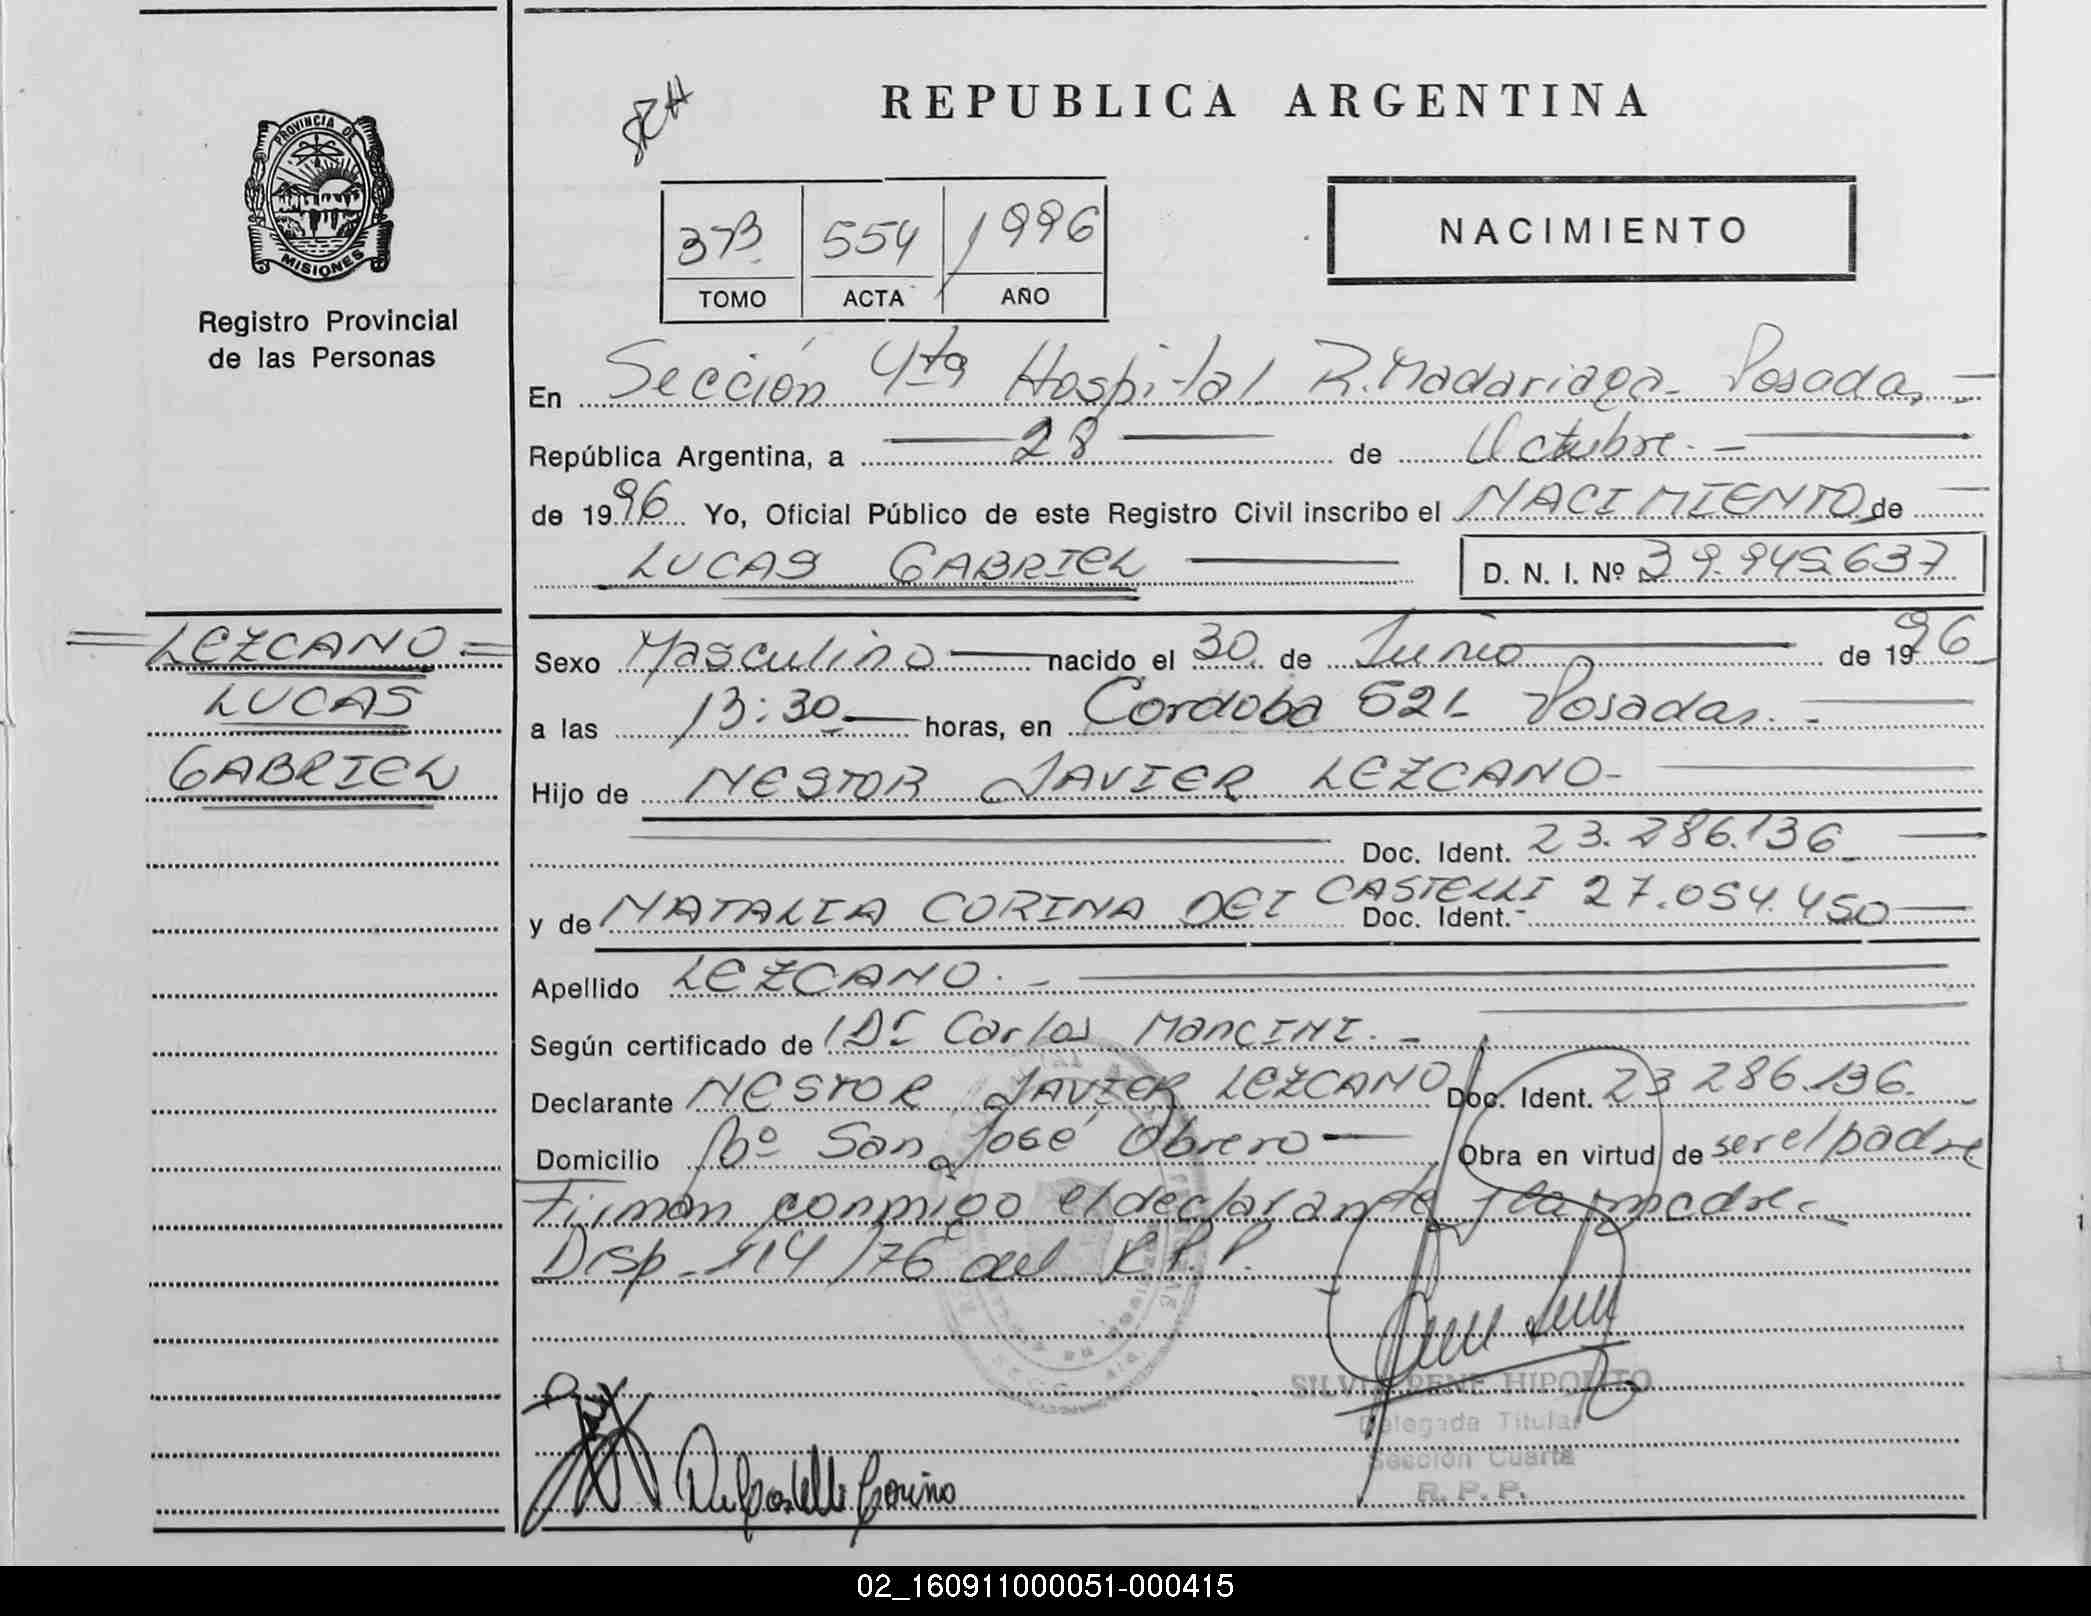 REPUBLICA ARGENTINA
PROVINCIA DE
MISIONES
Registro Provincial
de las Personas
373 554 1996
TOMO ACTA AÑO
NACIMIENTO
En Sección 4ta Hospital R. Madariaga - Posadas, -
República Argentina, a 28 de Octubre. -
de 1996 Yo, Oficial Público de este Registro Civil inscribo el NACIMIENTO de
LUCAS GABRIEL D. N. I. Nº 39.945.637
LEZCANO
LUCAS
GABRIEL
Sexo Masculino nacido el 30 de Junio de 1996
a las 13:30 horas, en Cordoba 521 Posadas. -
Hijo de NESTOR JAVIER LEZCANO -
Doc. Ident. 23.286.136
y de NATALIA CORINA DEI CASTELLI Doc. Ident. 27.054.450
Apellido LEZCANO. -
Según certificado de Dr Carlos MANCINI. -
Declarante NESTOR JAVIER LEZCANO Doc. Ident. 23 286.136.
Domicilio Bº San José Obrero Obra en virtud de ser el padre
Firman conmigo el declarante y la madre. -
Disp - 114/76 del R.P.P.
SILVIA RENE HIPOLITO
Delegada Titular
Sección Cuarta
R. P. P.
Dei Castelli Corina
02_160911000051-000415